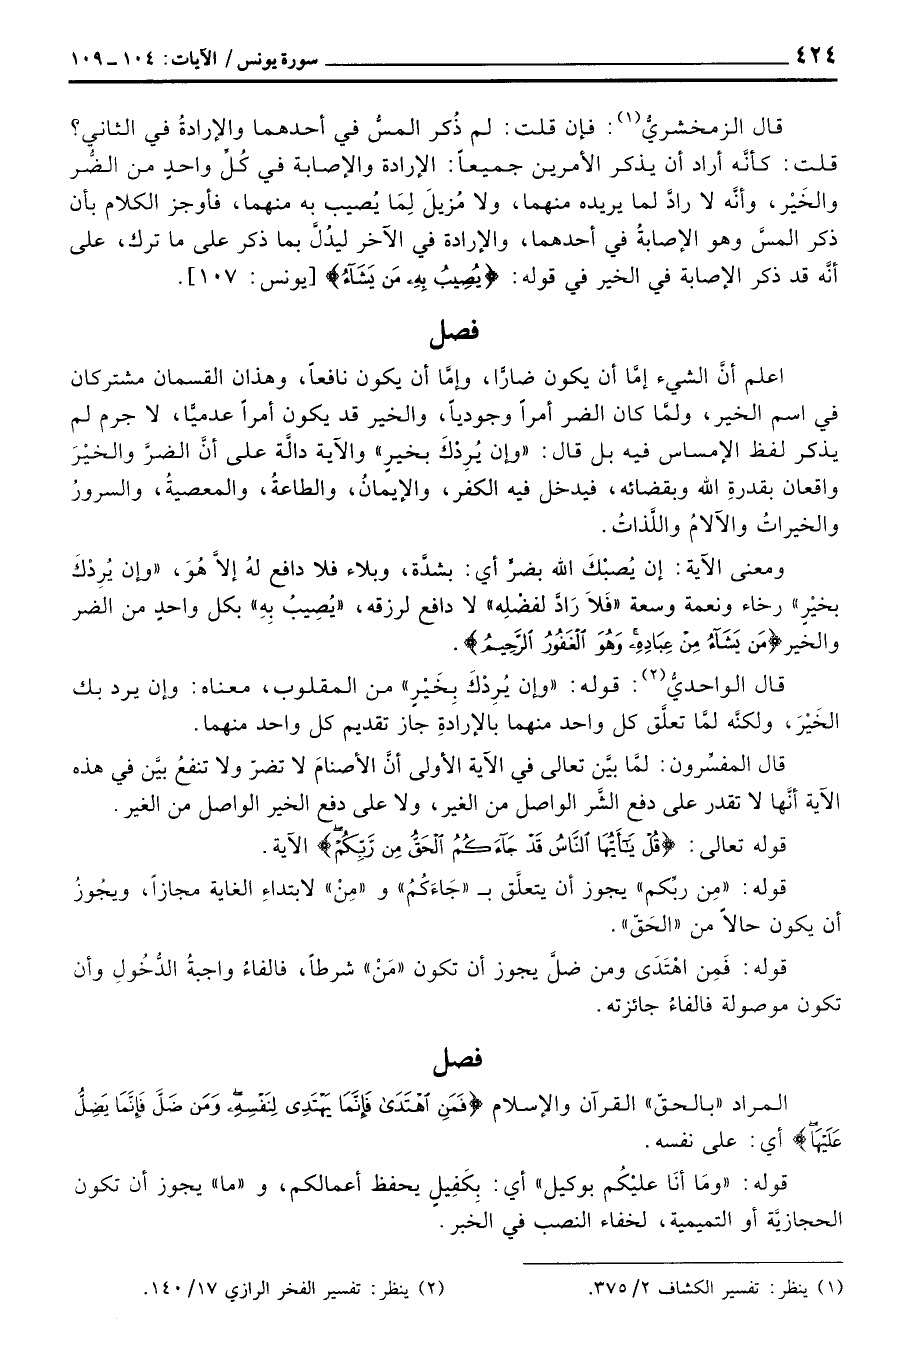 ٤٢٤ سورة يونس / الآيات: ١٠٤ ـ ١٠٩
قال الزمخشريُّ(١): فإن قلت: لم ذُكر المسُّ في أحدهما والإرادةُ في الثاني؟
قلت: كأنَّه أراد أن يذكر الأمرين جميعاً: الإرادة والإصابة في كُلِّ واحدٍ من الضُّر
والخَيْر، وأنَّه لا رادَّ لما يريده منهما، ولا مُزيلَ لِمَا يُصيب به منهما، فأوجز الكلام بأن
ذكر المسَّ وهو الإصابةُ في أحدهما، والإرادة في الآخر ليدُلَّ بما ذكر على ما ترك، على
أنَّه قد ذكر الإصابة في الخير في قوله: ﴿يُصِيبُ بِهِۦ مَن يَشَآءُ﴾ [يونس: ١٠٧].
فصل
اعلم أنَّ الشيء إمَّا أن يكون ضارًّا، وإمَّا أن يكون نافعاً، وهذان القسمان مشتركان
في اسم الخير، ولمَّا كان الضر أمراً وجودياً، والخير قد يكون أمراً عدميًّا، لا جرم لم
يذكر لفظ الإمساس فيه بل قال: «وإن يُرِدْكَ بخيرٍ» والآية دالَّة على أنَّ الضرَّ والخيْرَ
واقعان بقدرةِ الله وبقضائه، فيدخل فيه الكفر، والإيمانُ، والطاعةُ، والمعصيةُ، والسرورُ
والخيراتُ والآلامُ واللَّذاتُ.
ومعنى الآية: إن يُصبْكَ الله بضرٍّ أي: بشدَّة، وبلاء فلا دافع لهُ إلاَّ هُوَ، «وإن يُرِدْكَ
بخيْرٍ» رخاء ونعمة وسعة «فَلاَ رَادَّ لفضْلِه» لا دافع لرزقه، «يُصِيبُ بِهِ» بكل واحدٍ من الضر
والخير ﴿مَن يَشَآءُ مِنْ عِبَادِهِۦۚ وَهُوَ ٱلْغَفُورُ ٱلرَّحِيمُ﴾.
قال الواحديُّ(٢): قوله: «وإن يُرِدْكَ بِخَيْرٍ» من المقلوب، معناه: وإن يرد بك
الخَيْرَ، ولكنَّه لمَّا تعلَّق كل واحد منهما بالإرادةِ جاز تقديم كل واحد منهما.
قال المفسِّرون: لمَّا بيَّن تعالى في الآية الأولى أنَّ الأصنامَ لا تضرّ ولا تنفعُ بيَّن في هذه
الآية أنَّها لا تقدر على دفع الشَّر الواصل من الغير، ولا على دفع الخير الواصل من الغير.
قوله تعالى: ﴿قُلْ يَٰٓأَيُّهَا ٱلنَّاسُ قَدْ جَآءَكُمُ ٱلْحَقُّ مِن رَّبِّكُمْۖ﴾ الآية.
قوله: «مِن ربِّكم» يجوز أن يتعلَّق بـ «جَاءَكُمُ» و «مِنْ» لابتداءِ الغاية مجازاً، ويجُوزُ
أن يكون حالاً من «الحَقّ».
قوله: فَمِن اهْتَدَى ومن ضلَّ يجوز أن تكون «مَنْ» شرطاً، فالفاءُ واجبةُ الدُّخُولِ وأن
تكون موصولة فالفاءُ جائزته.
فصل
المراد «بالحقّ» القرآن والإسلام ﴿فَمَنِ ٱهْتَدَىٰ فَإِنَّمَا يَهْتَدِى لِنَفْسِهِۦۖ وَمَن ضَلَّ فَإِنَّمَا يَضِلُّ
عَلَيْهَاۖ﴾ أي: على نفسه.
قوله: «ومَا أنَا عليْكُم بوكيل» أي: بِكَفِيلٍ يحفظ أعمالكم، و «ما» يجوز أن تكون
الحجازيَّة أو التميمية، لخفاء النصب في الخبر.
(١) ينظر: تفسير الكشاف ٢/ ٣٧٥. (٢) ينظر: تفسير الفخر الرازي ١٧/ ١٤٠.